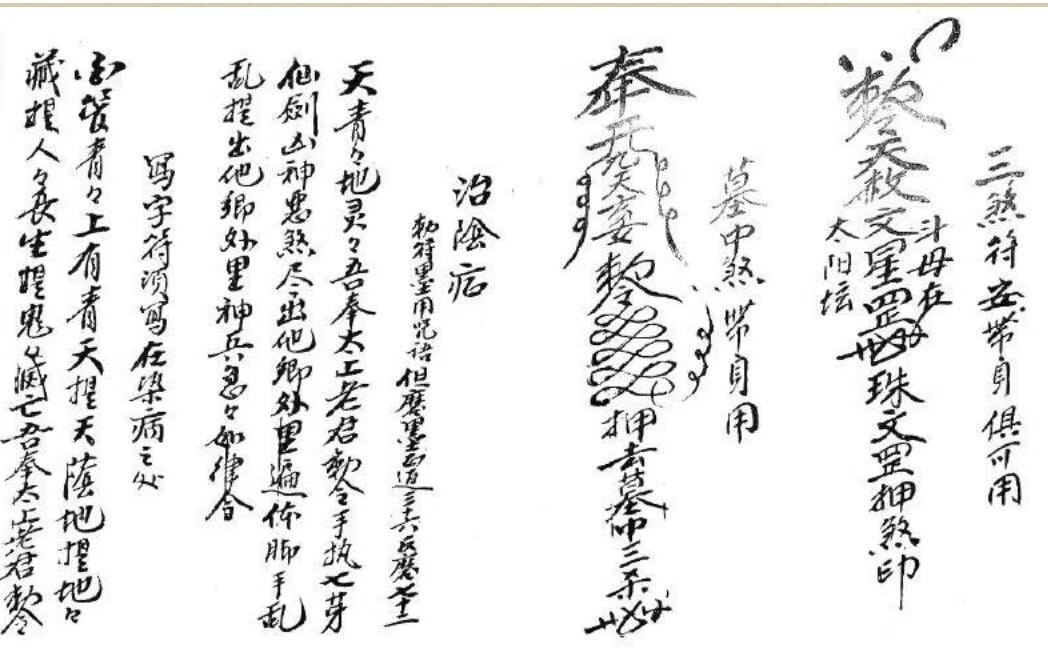 三煞符安带身俱可用
敕令天赦文星罡 珠文罡押煞印
斗母在
太阳坛
墓中煞带身用
奉 敕令 押去墓中三杀
治陰症
勅符墨用咒语但磨墨 三六反磨七十二
天青々地灵々吾奉太上老君勅令手执七芽
仙劍凶神恶煞尽出他鄉外里遍体脚手乱
乱提出他鄉外里神兵急々如律令
写字符须写在染病之处
青々上有青天提天蔭地提地々
藏提人々長生提鬼々滅亡吾奉太上老君勅令